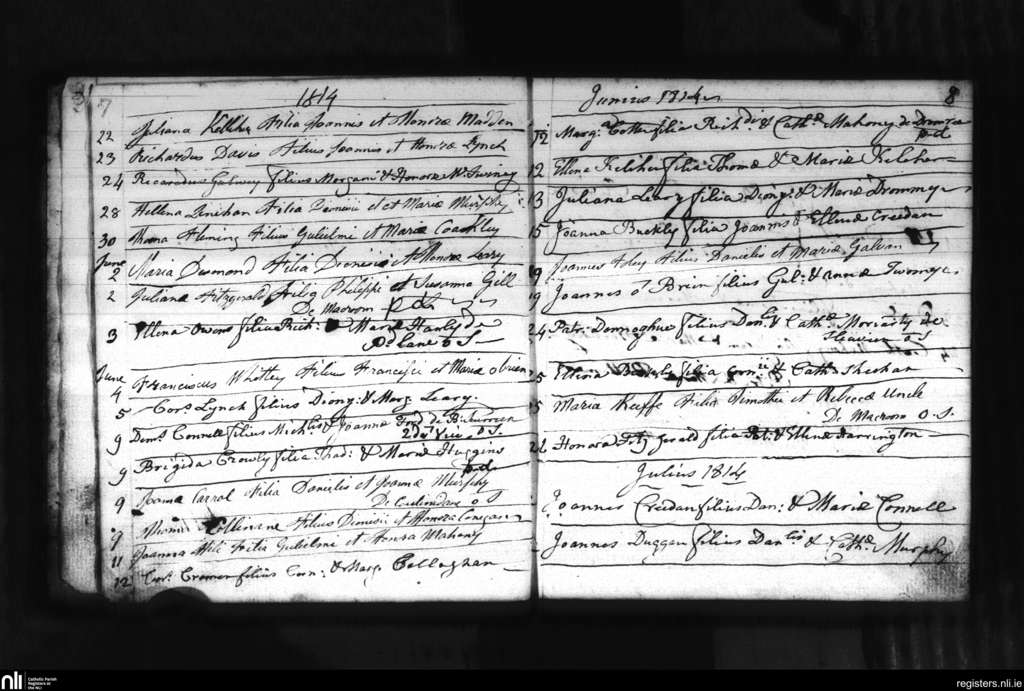 7
1814
22 Juliana Kelliher Filia Joannis et Honoræ Madden
23 Richardus Davis Filius Joannis et Honoræ Lynch
24 Ricardus Galwey filius Morgani & Honoræ Mc Swiney
28 Hellena Linihan Filia Dionisii et et Mariæ Murphy
30 Thoma Fleming Filius Gulielmi et Mariæ Coakley
June
2 Maria Desmond Filia Dionisii et Honoræ Leary
2 Juliana Fitzgerald Filia Philippi et Susanna Gill
De Macroom pd
3 Ellena Owens filia Rich: & Mariæ Hawly
De Lane O S
June
4 Franciscus Whitley Filius Francisci et Mariæ obrien
5 Cors Lynch filius Diony: & Marg Leary
9 Denis Connell filius Michlis & Joannæ
O S
9 Brigida Crowly filia Thad: & Mariæ Huggins
pd
9 Joanna Carrol Filia Danielis et Joannæ Murphy
De O S
9 Cullinane Filius Dionisii et Honoræ
11 Joanna Filia Gulielmi et Mahony
12 Cors Cremen filius Corn: & Marg Callaghan
8
Junius 1814
12 Marga Cotter filia Richdi & Cathæ Mahony de
pd
12 Ellena Kelcher filia Thomæ & Mariæ Kelcher
13 Juliana Leary filia Diony: & Mariæ Drommey
15 Joanna Buckly filia Joannis & Ellenæ Creedan
19 Joannes Filius Danielis et Mariæ Galvan
19 Joannes o Brien filius Gul: & Annæ Twomey
24 Patr: Donnoghue filius Don: & Cathæ Moriarty de
O S
25 Ellena filia Cornii & Cathæ Sheehan
25 Maria Keeffe Filia Timothei et Rebecæ Uncle
De Macroom O. S.
26 Honora Fitzgerald filia Pat: & Ellenæ Harrington
Julius 1814
Joannes Creedan filius Dan: & Mariæ Connell
Joannes Duggan filius Danlis & Cathæ Murphy
nli
Catholic Parish
Registers at
the NLI
registers.nli.ie